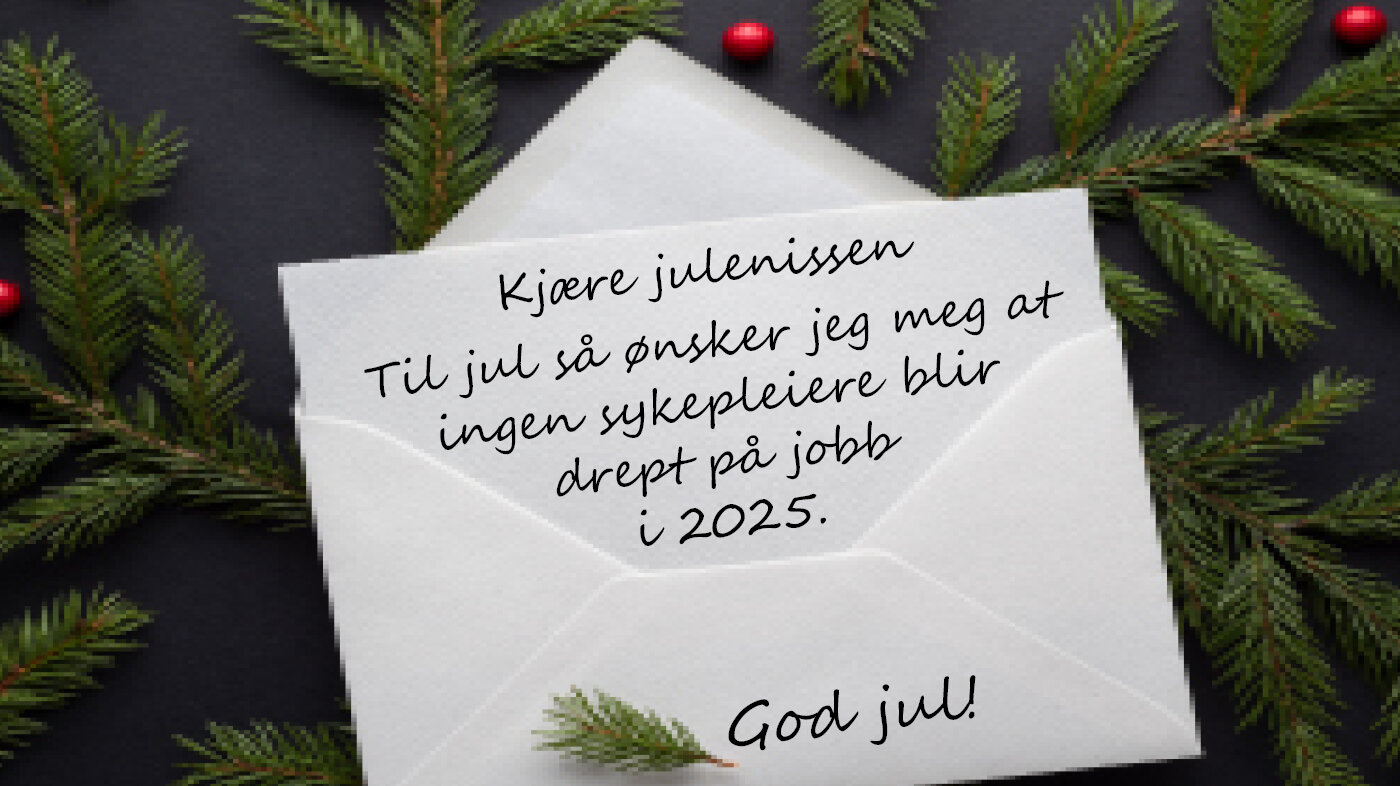 Kjære julenissen
Til jul så ønsker jeg meg at
ingen sykepleiere blir
drept på jobb
i 2025.
God jul!